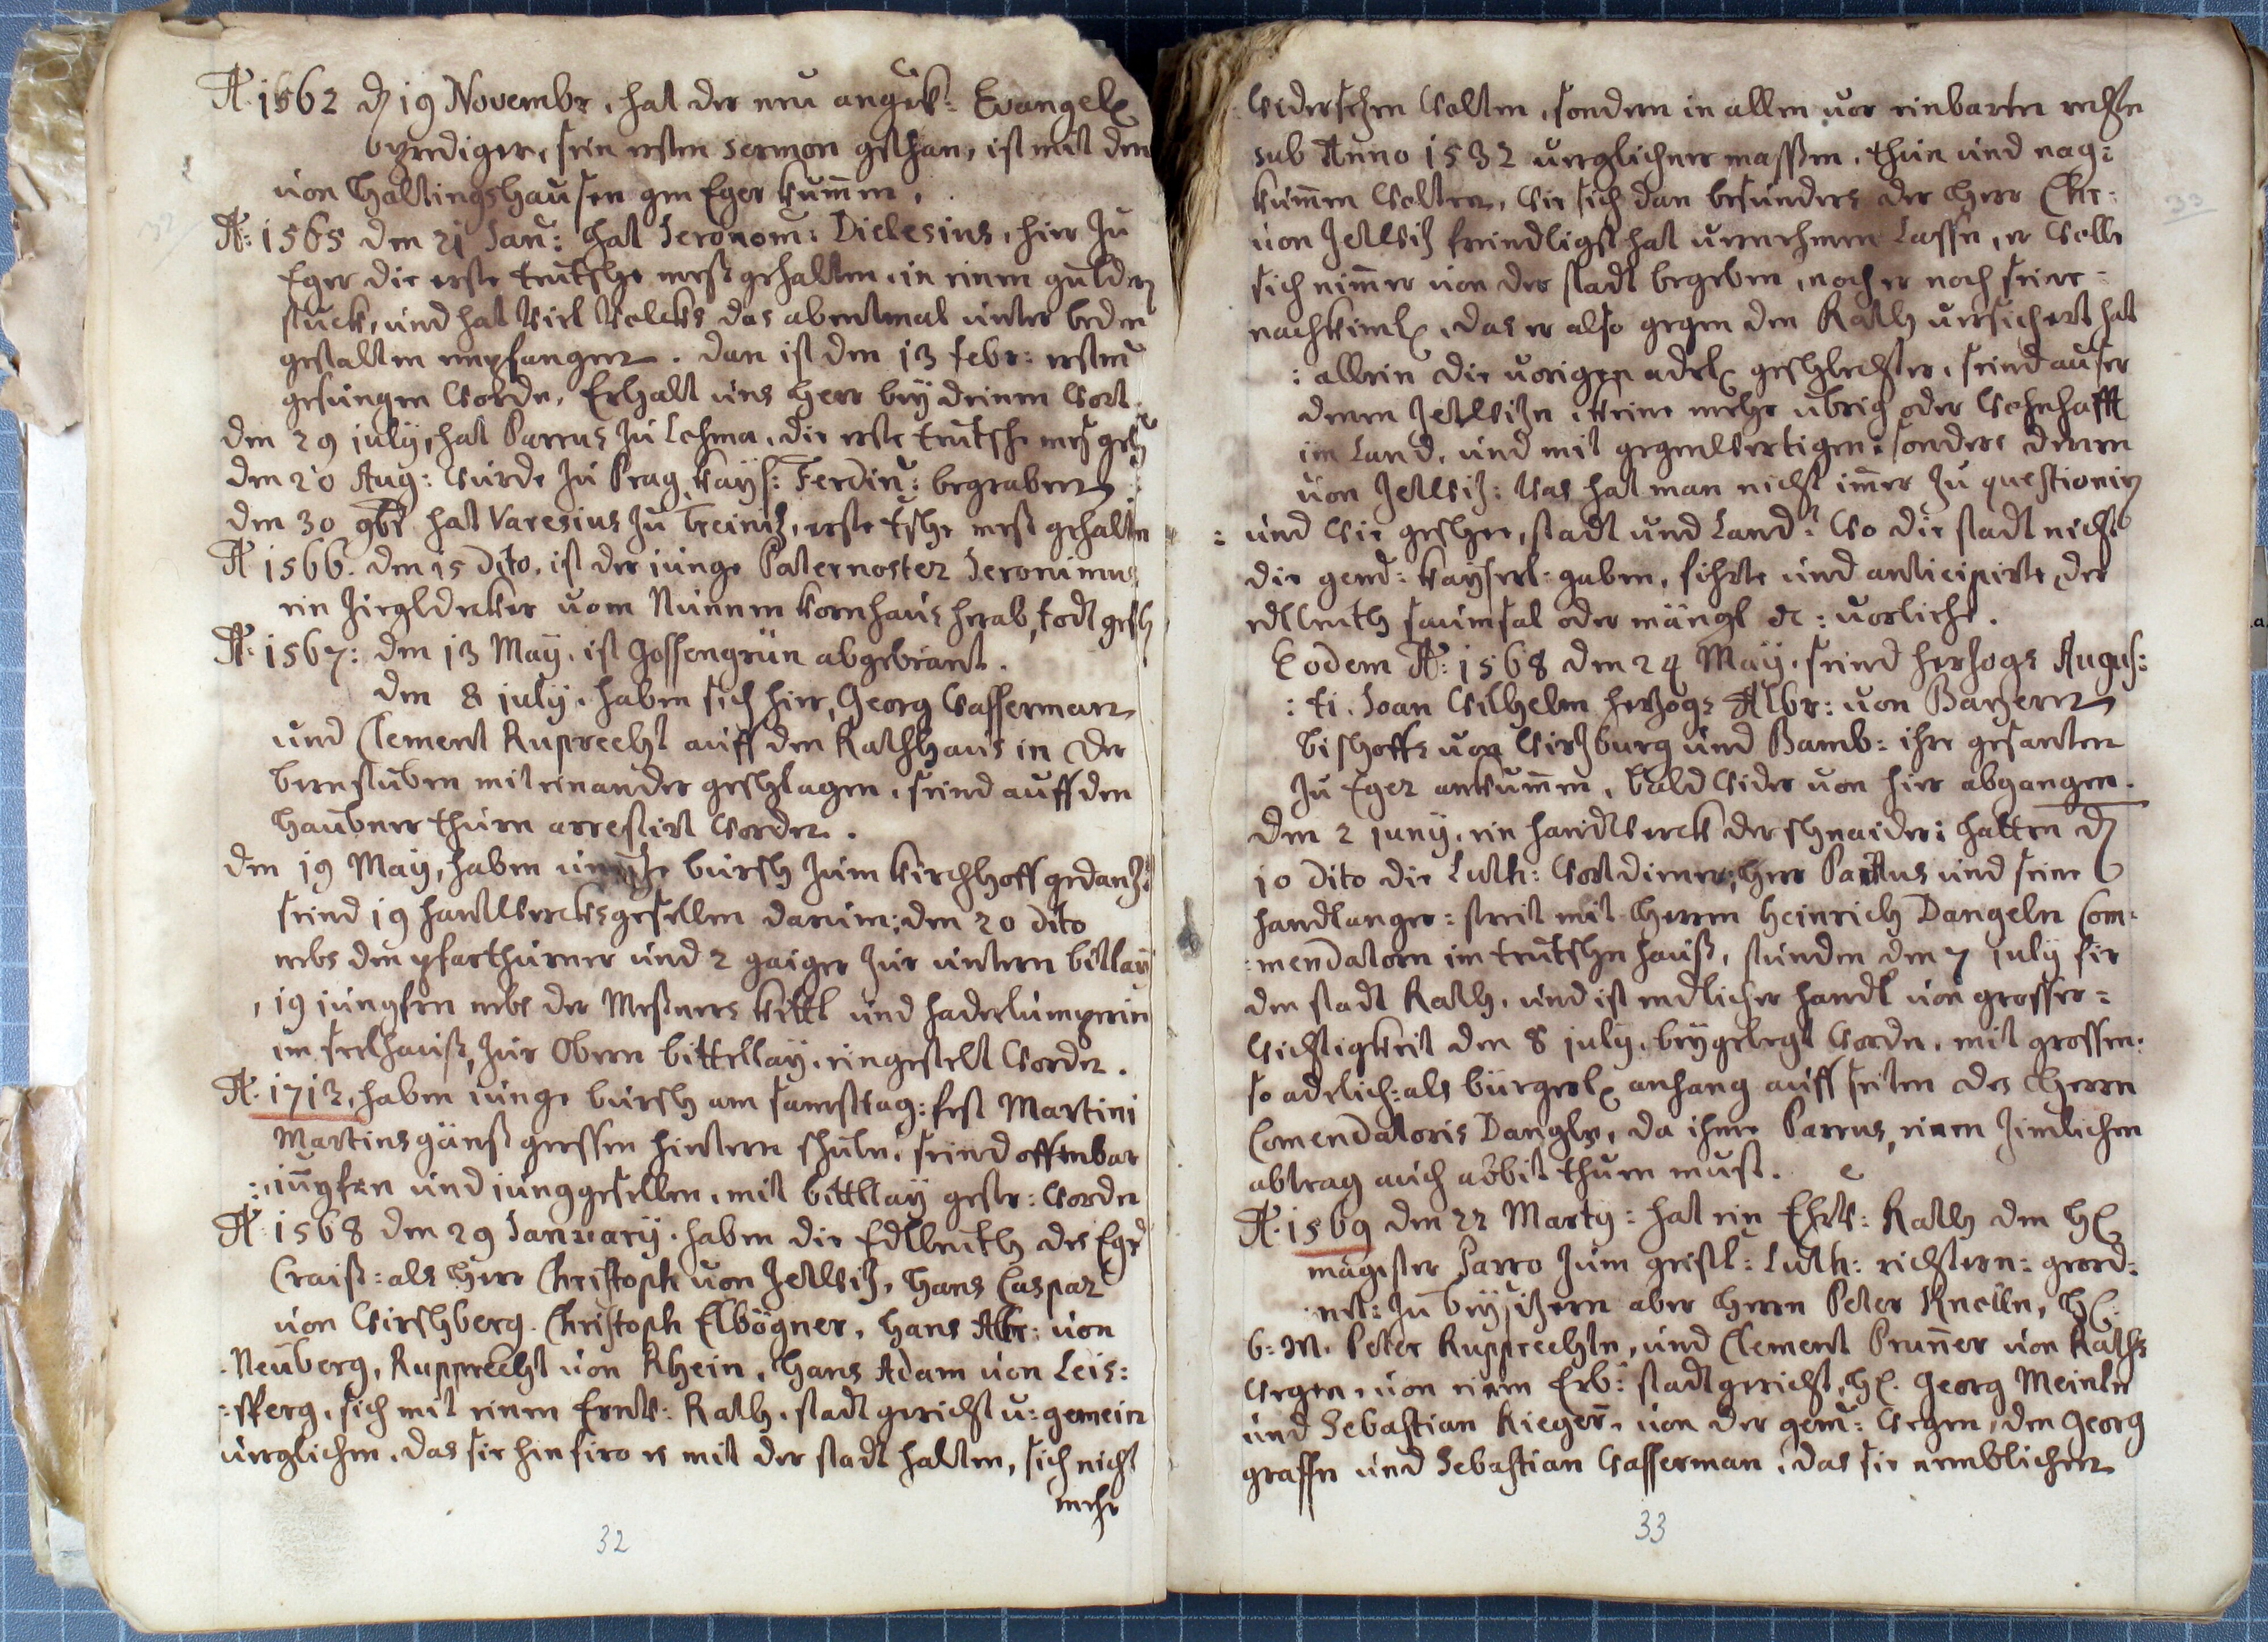 A: 1562 dz 19 Novembr, hat der neu angek: Evangel:
byrediger, sein ersten sermon gethan, ist mit den
von Haltingshausen gen Eger kummen,
A: 1565 den 21 Janu: hat Jeronom: Dielesius, hier zu
Eger die erste teutsche mess gehalten, in einem gulden
stuck, und hat viel Volcks das abentmal unter beden
gestalten empfangen. dan ist den 13 febr: ersten
gesungen worden, Erhalt uns Herr bey deinem wort.
den 29 july, hat Parrus zu Lehma, die erste teutsch mess geh
den 20 Aug: wurde zu Prag kays: Ferdin: begraben,
den 30 9br hat Varesius zu Treinitz, erste tsche mess gehalten
A 1566. den 15 dito, ist der junge Paternoster Jeronimus
ein ziegldeker vom Nunnen kornhaus herab, todt gesch
A: 1567: den 13 May, ist Gossengrün abgebrant.
den 8 july, haben sich hier, Georg Wasserman
und Clement Ruprecht auff den Rathhaus in der
bernstuben miteinander geschlagen, seind auff den
haubner thurn arrestirt worden.
den 19 May, haben bursch zum kirchhoff gedantzt
seind 19 hantwercksgesellen darum; den 20 dito
nebs den pfarthurner und 2 gaiger zur untern bittlay
, 19 jungfern nebs der Messners kittl und haderlumperin
im seelhauss, zur Obern bittellay, eingestelt worden.
A: 1713, haben junge bursch am samsttag: fest Martini
Martinsgänss gessen hintern schuln, seind offenbar
: jungfern und junggesellen, mit bittllay gestr: worden
A: 1568 den 29 January, haben die Edlleuth des Egr
Craiss: als Herr Christoph von Zettwitz, Hans Caspar
von Wirschberg. Christoph Elbögner, Hans Albr: von
Neuberg, Rupprecht von Rhein, Hans Adam von Leis:
:sperg, sich mit einem Ernv: Rath, stadt gericht u: gemein
verglichen, das sie hinfiro es mit der stadt halten, sich nicht
mehr
32
widersetzen wolten, sondern in allen vor einbarten rechten
sub Anno 1532 verglichner massen, thun und nag:
kummen wolten, wie sich dan besunders der Herr Chr:
von Zettwitz freindligst hat vernehmen lassen, er wolle
sich nimmer von der stadt begeben, noch er noch seine
nachkiml, das er also gegen den Rath versichert hat
: allein die vorigen adel: geschlechter, seind auser
denen Zettwitzn, keine mehr übrig oder wohnhafft
im Land, und mit gegenwertigen: sonders denen
von Zettwitz: was hat man nicht immer zu questionirn
: und wie geschen, stadt und Land: wo die stadt nicht
die gemd: kayserl: gaben, fihrte und anticipirte, der
edlleuth saumsal oder mängl etc: vorliche.
Eodem A: 1568 den 24 May, seind Herzogs Augus:
: ti. Joan Wilhelm Herzogs Albr: von Bayern
bischoffs von Wirtzburg und Bamb: ihre gesanten
zu Eger ankummen, bald wider von hier abgangen.
den 2 juny, ein handtwerck der schneider: hatten dz
10 dito die Luth: wordiener, Herr Parrus und seine
handlanger: streit mit Herrn Heinrich Dangeln Com:
:mendatorn im teutschn hauss, stunden den 7 july fir
den stadt Rath, und ist endlicher handl von grosser:
wichtigkeit den 8 july, beygelegt worden, mit grossen:
so adelich: als bürgerl: anhang auff seiten des Herrn
Comendatoris Dangls, da ihme Parrus, einen zimlichen
abtrag auch abbit thuen must. e
A: 1569 den 22 Marty: hat ein Ehrv: Rath den H:
magister Parro zum geistl: Luth: richtern: geord:
:net: zu beysitzern aber Herrn Peter Knölln, H:
b: M. Peter Rupprechtn, und Clement Prunner von Raths
wegen, von einem Erb: stadtgericht, H: Georg Meinln
und Sebastian Rieger, von der gem: wegen, den Georg
graffn und Sebastian Wasserman, das sie nemblichen
33